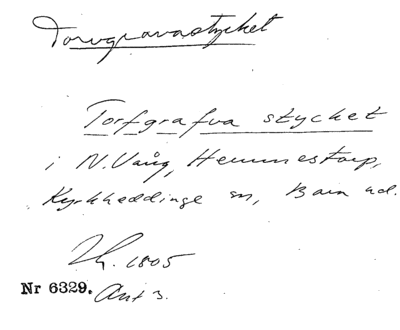 Torvgravastycket
Torfgrafva stycket
i N. Vång, Hemmestorp,
Kyrkheddinge sn, Bara hd.
1805
Nr 6329. Akt 3.